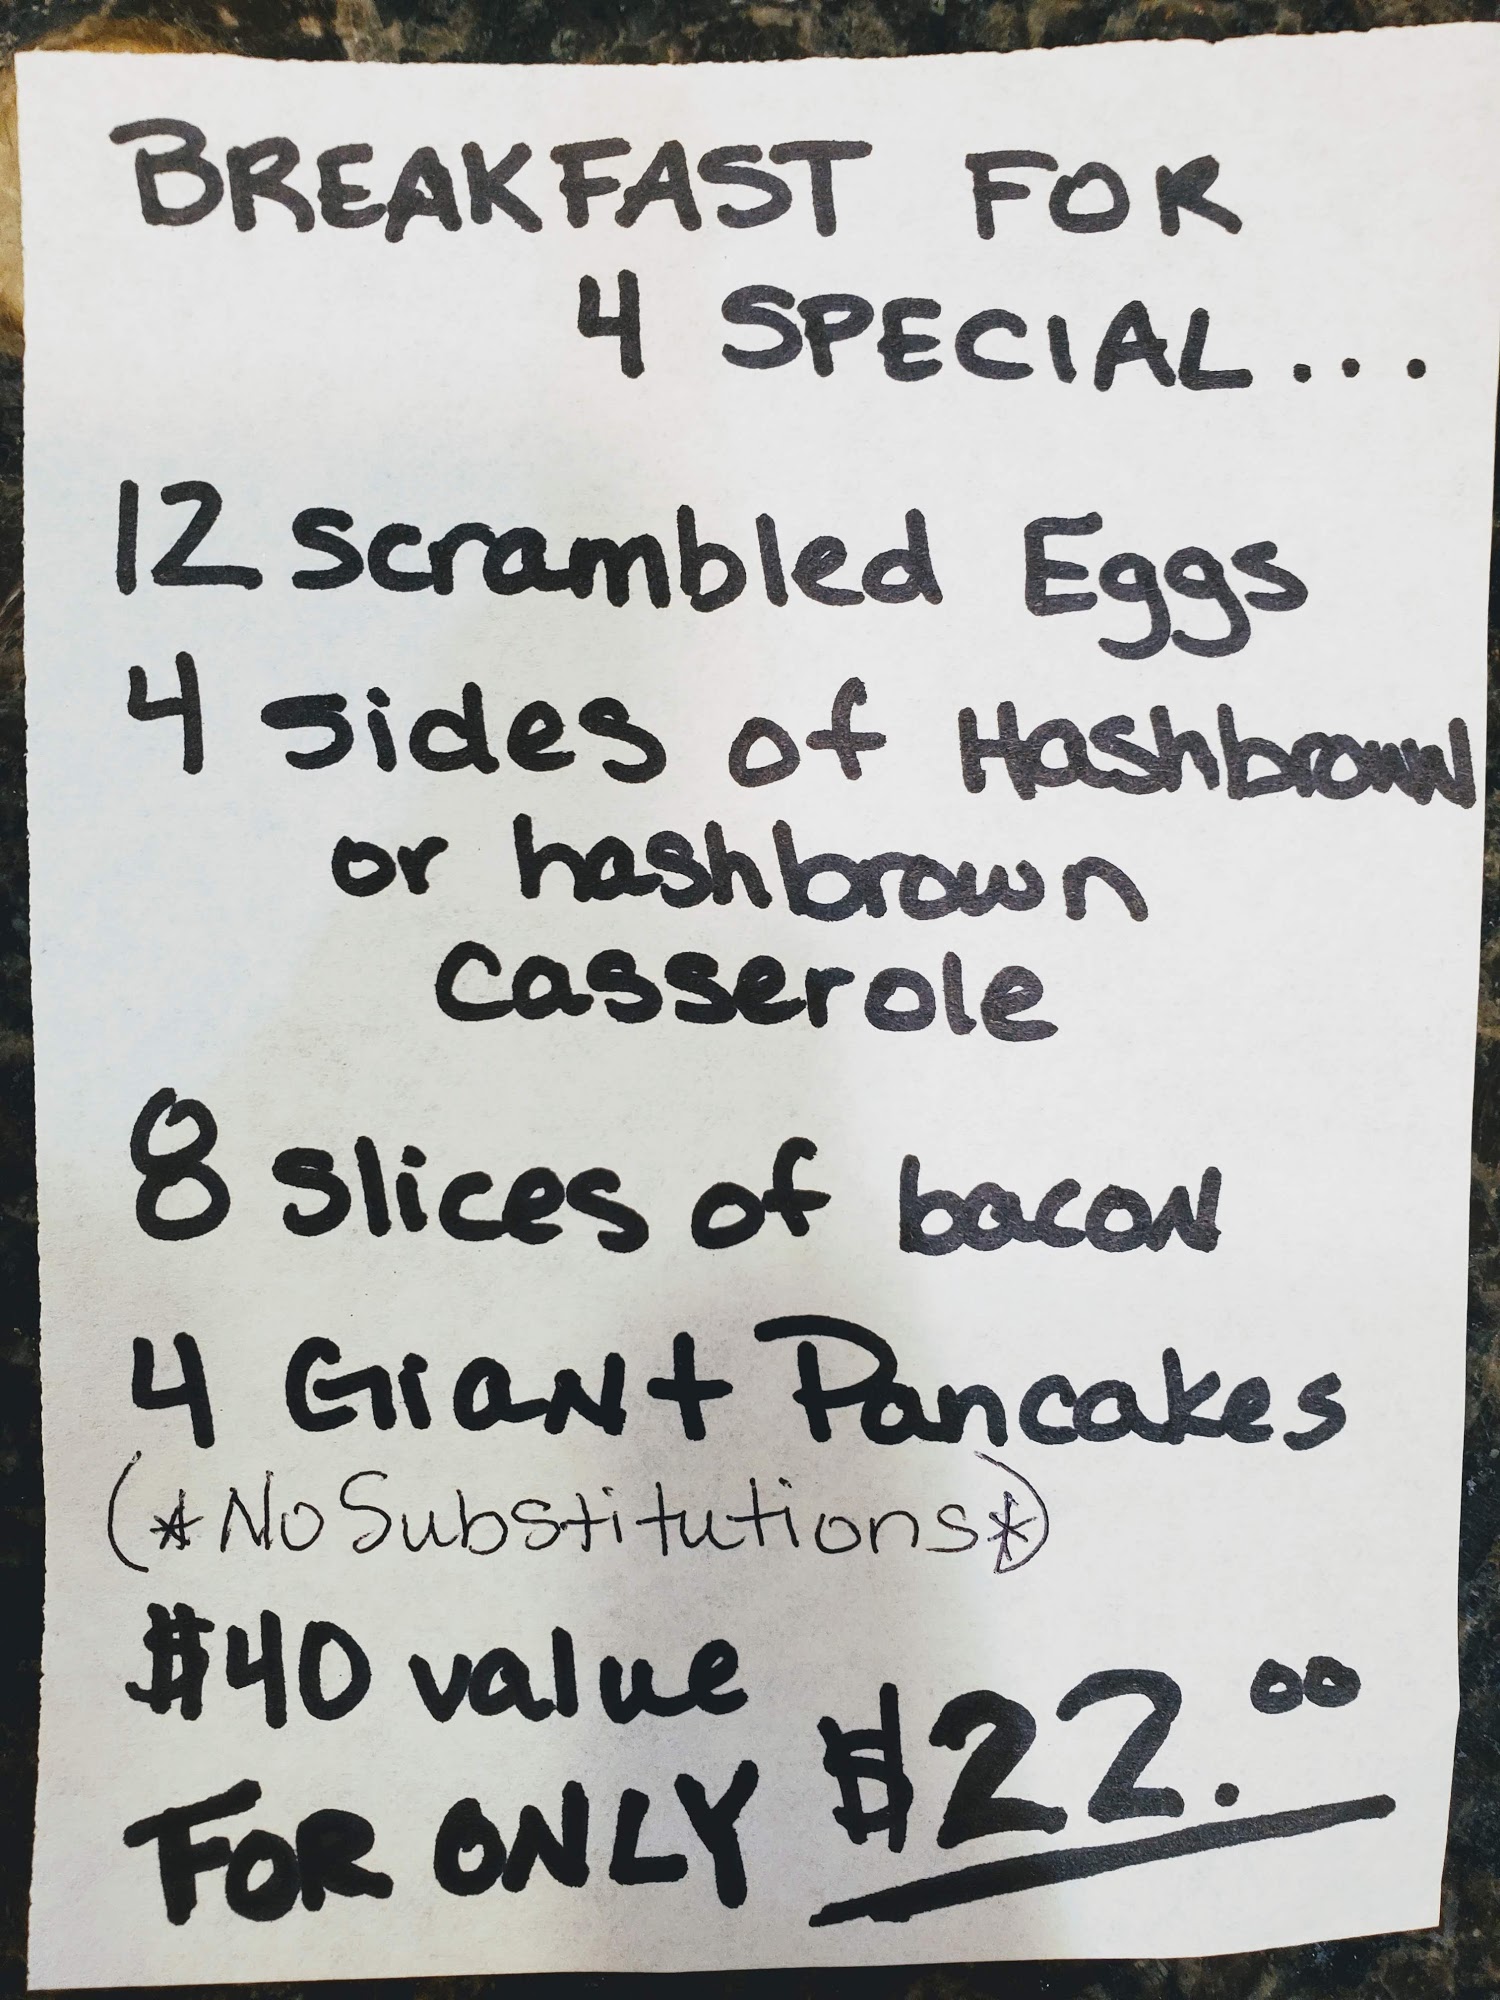 BREAKFAST FOR
4 SPECIAL...
12 scrambled Eggs
4 sides of Hashbrown
or hashbrown
casserole
8 slices of bacon
4 Giant Pancakes
(*No Substitutions*)
$40 value
FOR ONLY $22.00